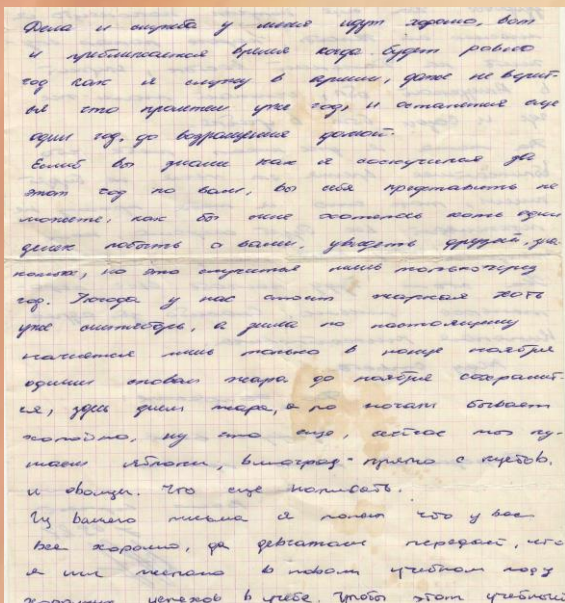 Дела и служба у меня идут хорошо, вот
и приближается время когда будет равно
год как я служу в армии, даже не верит-
ся что пролетел уже год, и останется еще
один год, до возращения домой.
Еслиб вы знали как я соскучился за
этот год по вам, вы себе представить не
можете, как бы мне хотелось хоть один
денек побыть с вами, увидеть друзей, зна-
комых, но это случиться лишь только через
год. Погода у нас стоит жаркая хоть
уже сентябрь, а зима по настоящему
начнется лишь только в конце ноября
одним словом жара до ноября сохранит-
ся, здесь днем жара, а по ночам бывает
холодно, ну что еще, сейчас мы ку-
шаем яблоки, виноград прямо с кустов.
и овощи. Что еще написать.
Из Вашего письма я понял что у вас
все хорошо, да девчатам передай, что
я им желаю в новом учебном году
хороших успехов в учебе, чтобы этот учебный